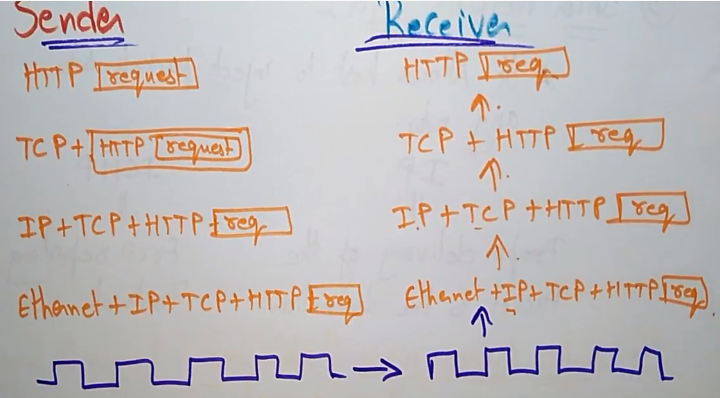 Sender
HTTP request
TCP + HTTP request
IP + TCP + HTTP req
Ethernet + IP + TCP + HTTP req
Receiver
HTTP req
TCP + HTTP req
IP + TCP + HTTP req
Ethernet + IP + TCP + HTTP req